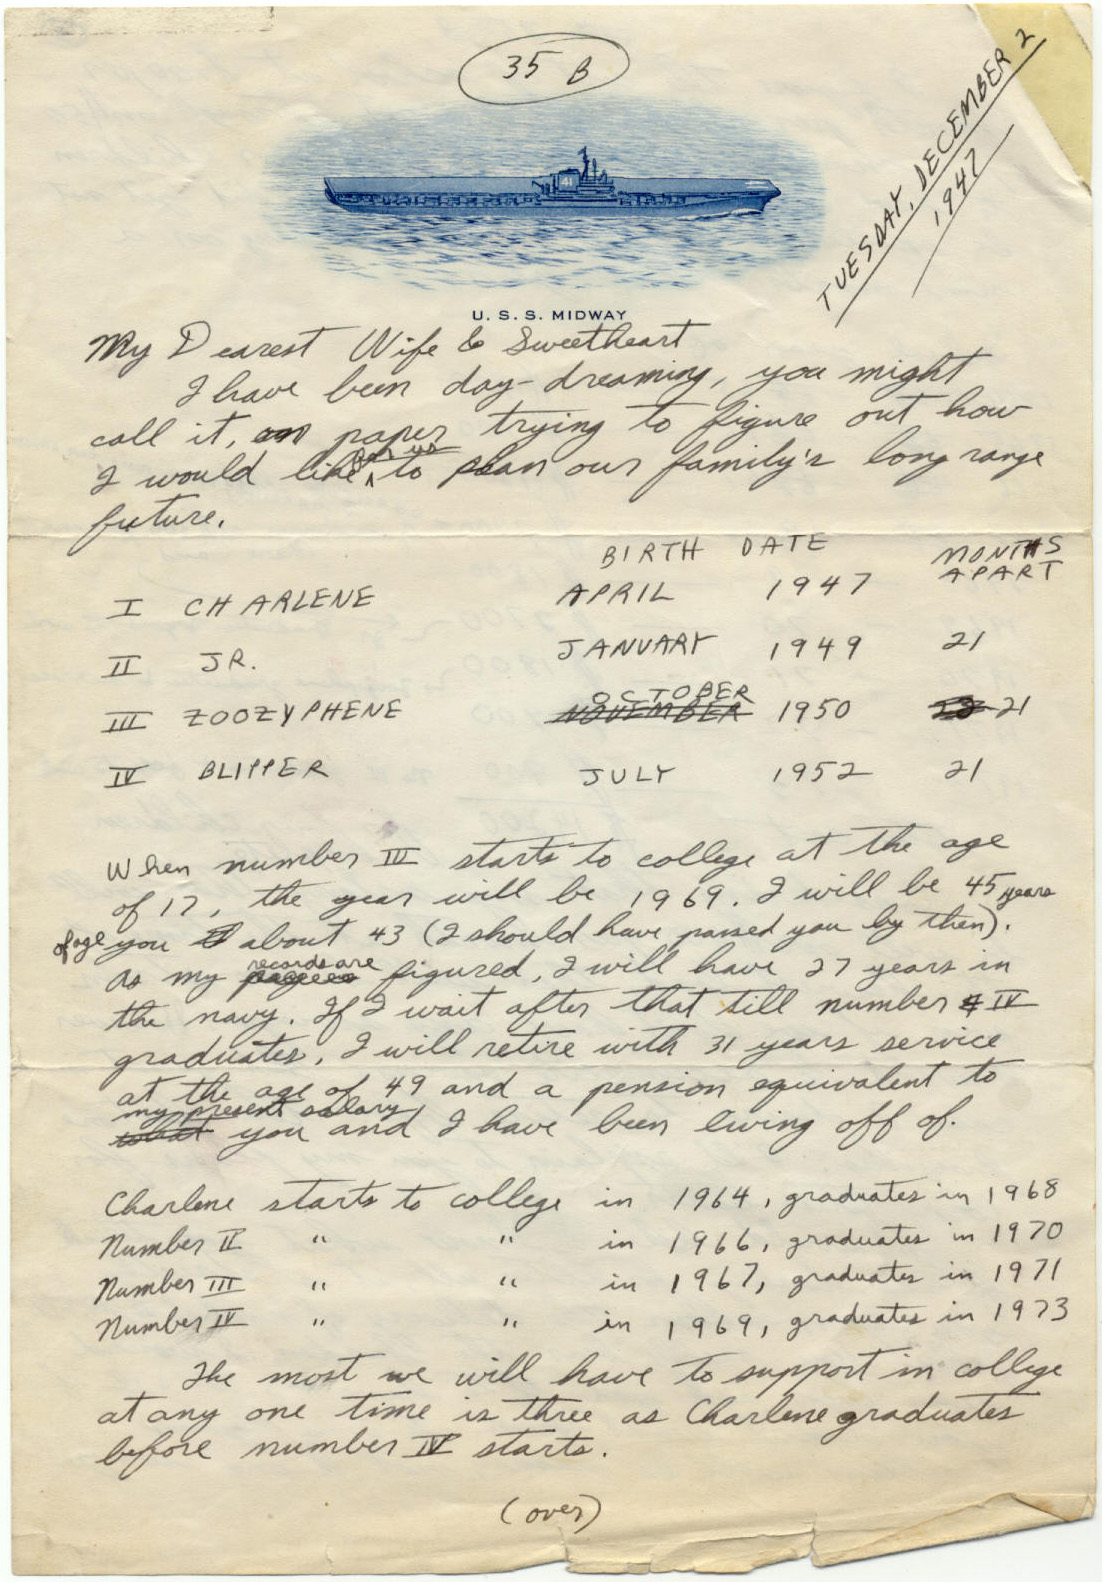 35 B
TUESDAY, DECEMBER 2
1947
41
U. S. S. MIDWAY
My Dearest Wife & Sweetheart
I have been day-dreaming, you might
call it, on paper trying to figure out how
I would like for us to plan our family's long range
future.
BIRTH DATE MONTHS APART
I CHARLENE APRIL 1947
II JR. JANUARY 1949 21
III ZOOZYPHENE NOVEMBER OCTOBER 1950 22 21
IV BLIPPER JULY 1952 21
When number III starts to college at the age
of 17, the year will be 1969. I will be 45 years
of age you about 43 (I should have passed you by then).
As my records are figured, I will have 27 years in
the navy. If I wait after that till number IV
graduates, I will retire with 31 years service
at the age of 49 and a pension equivalent to
my present salary
what you and I have been living off of.
Charlene starts to college in 1964, graduates in 1968
Number II " " in 1966, graduates in 1970
Number III " " in 1967, graduates in 1971
Number IV " " in 1969, graduates in 1973
The most we will have to support in college
at any one time is three as Charlene graduates
before number IV starts.
(over)